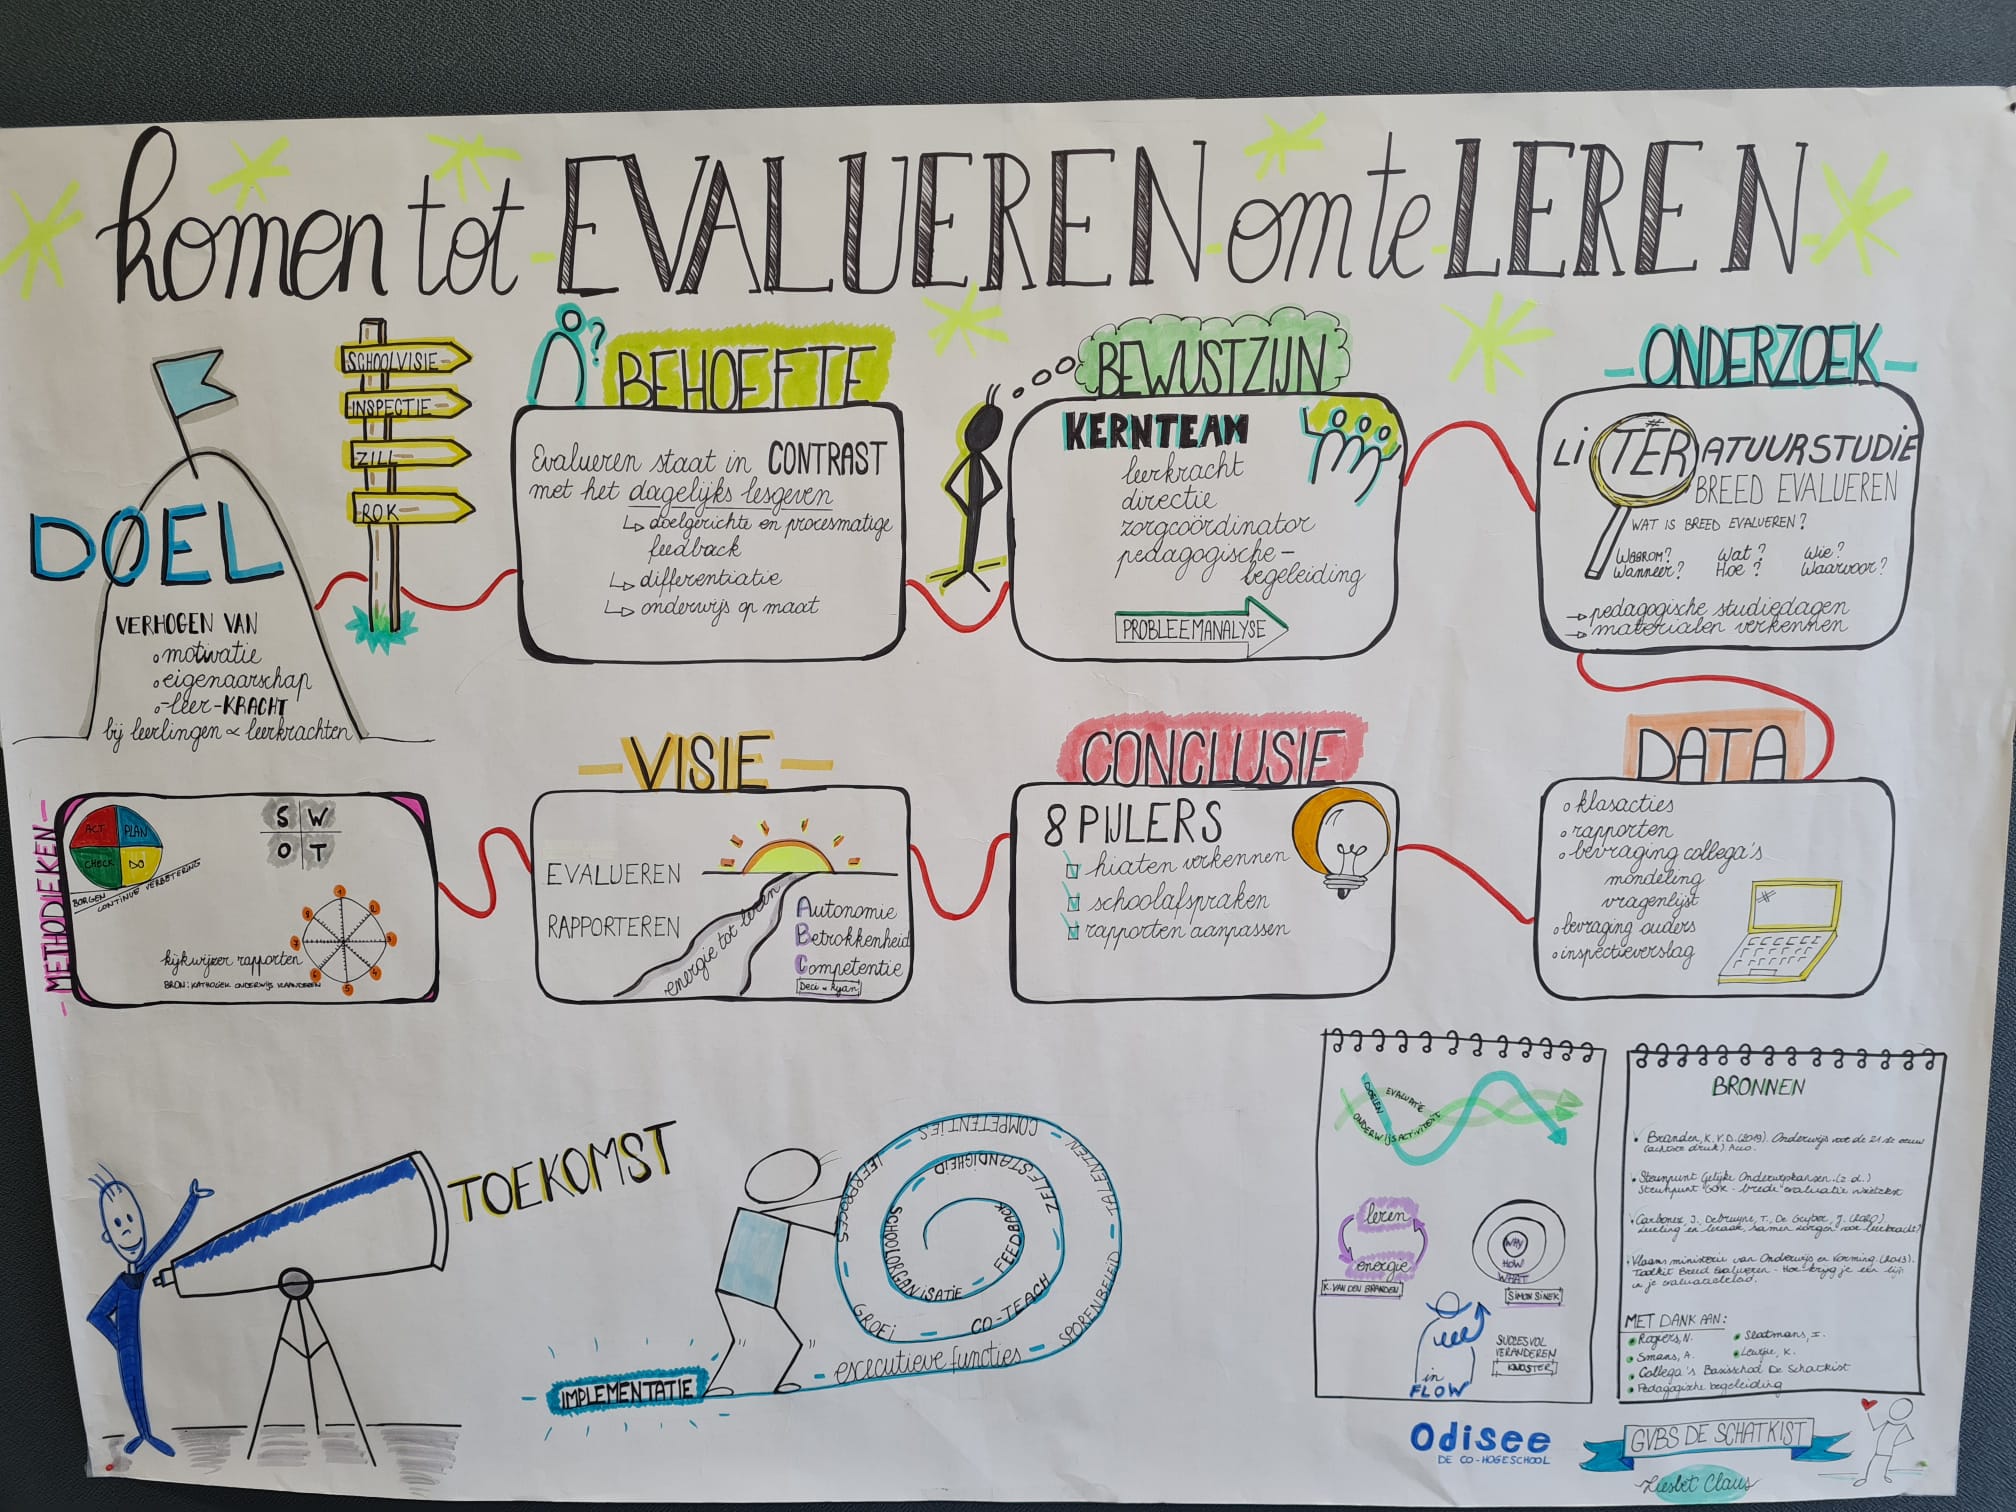 komen tot - EVALUEREN - om te - LEREN -
SCHOOLVISIE
INSPECTIE
ZILL
ROK
DOEL
VERHOGEN VAN
motivatie
eigenaarschap
leer-KRACHT
bij leerlingen & leerkrachten
BEHOEFTE
Evalueren staat in CONTRAST
met het dagelijks lesgeven
↳ doelgerichte en procesmatige
feedback
↳ differentiatie
↳ onderwijs op maat
BEWUSTZIJN
KERNTEAM
leerkracht
directie
zorgcoördinator
pedagogische-
begeleiding
PROBLEEMANALYSE
- ONDERZOEK -
LITERATUURSTUDIE
BREED EVALUEREN
WAT IS BREED EVALUEREN?
Waarom? Wat? Wie?
Wanneer? Hoe? Waarvoor?
→ pedagogische studiedagen
→ materialen verkennen
DATA
klasacties
rapporten
bevraging collega's
mondeling
vragenlijst
bevraging ouders
inspectieverslag
CONCLUSIE
8 PIJLERS
hiaten verkennen
schoolafspraken
rapporten aanpassen
- VISIE -
EVALUEREN
RAPPORTEREN
energie tot leren
Autonomie
Betrokkenheid
Competentie
Deci & Ryan
- METHODIEKEN -
ACT PLAN
CHECK DO
BORGEN
CONTINUE VERBETERING
S W
O T
1
2
3
4
5
6
7
8
kijkwijzer rapporten
BRON: KATHOLIEK ONDERWIJS VLAANDEREN
TOEKOMST
IMPLEMENTATIE
- executieve functies - SPORENBELEID - TALENTEN - COMPETENTIES - LEERPROCES - GROEI - CO-TEACH - ZELFSTANDIGHEID - SCHOOLORGANISATIE - FEEDBACK
DOELEN
EVALUATIE
ONDERWIJSACTIVITEIT
leren
energie
K. VAN DEN BRANDEN
WHY
HOW
WHAT
SIMON SINEK
in
FLOW
SUCCESVOL
VERANDEREN
KNOSTER
BRONNEN
Branden, K. V.D. (2019). Onderwijs voor de 21ste eeuw
(achtste druk). Acco.
Steunpunt Gelijke Onderwijskansen. (z.d.)
Steunpunt GOK - brede evaluatie
Carbonez, J. Debruyne, T., De Gruyter, J. (2020)
Leerling en leraak, samen zorgen voor leerkracht!
Vlaams ministerie van Onderwijs en Vorming. (2013).
Toolkit Breed Evalueren - Hoe krijg je een lijn
in je evaluatiebeleid.
MET DANK AAN:
Rogiers, N.
Slootmans, I.
Smans, A.
Collega's Basisschool De Schatkist
Pedagogische begeleiding
Odisee
DE CO-HOGESCHOOL
GVBS DE SCHATKIST
Liesbet Claus